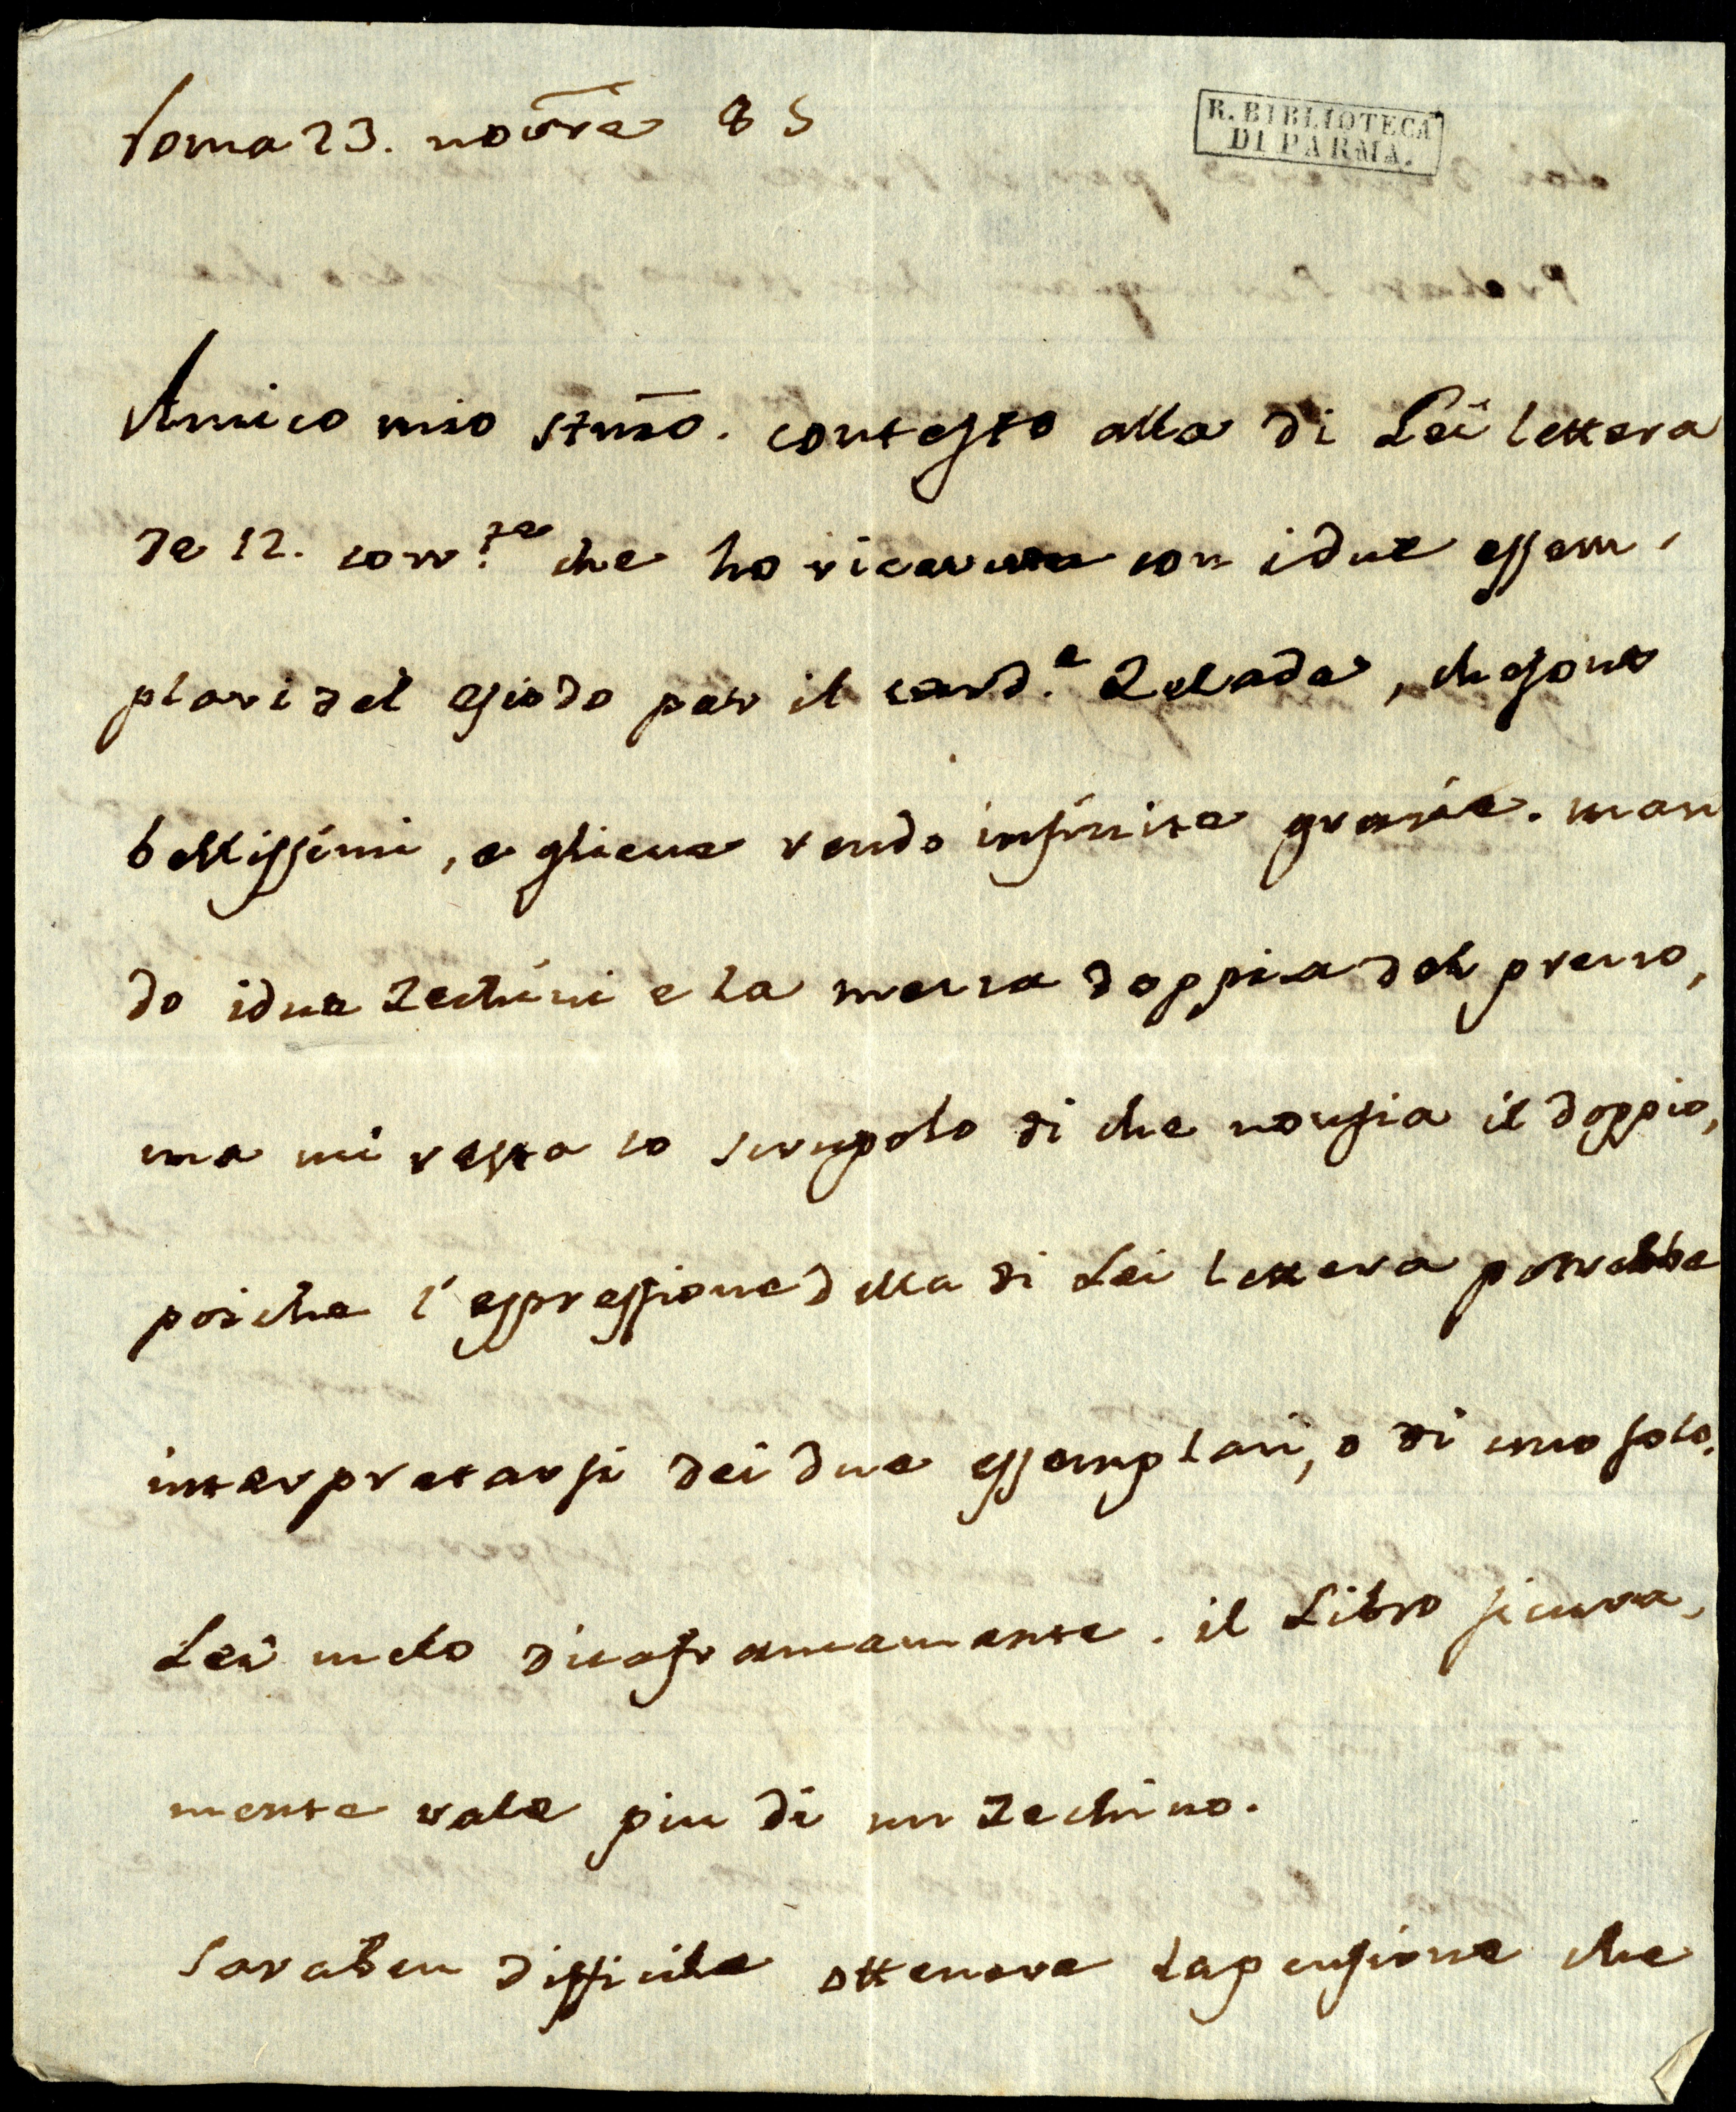 Roma 23. novre 85
R. BIBLIOTECA
DI PARMA.
Amico mio stmo. contesto alla di Lei lettera
de 12. corr.te che ho ricevuta con i due essem,
plari del esiodo per il card.e Zelada, che sono
bellissimi, e gliene rendo infinite grazie. man
do i due zechini e la mezza doppia del prezzo,
ma mi resta lo scrupolo di che non sia il doppio,
poiche l'espressione della di Lei lettera potrebbe
interpretarsi dei due essemplari, o di uno solo.
Lei melo dica francamente. il Libro sicura,
mente vale piu di un zechino.
Sara ben difficile ottenere la pensione che